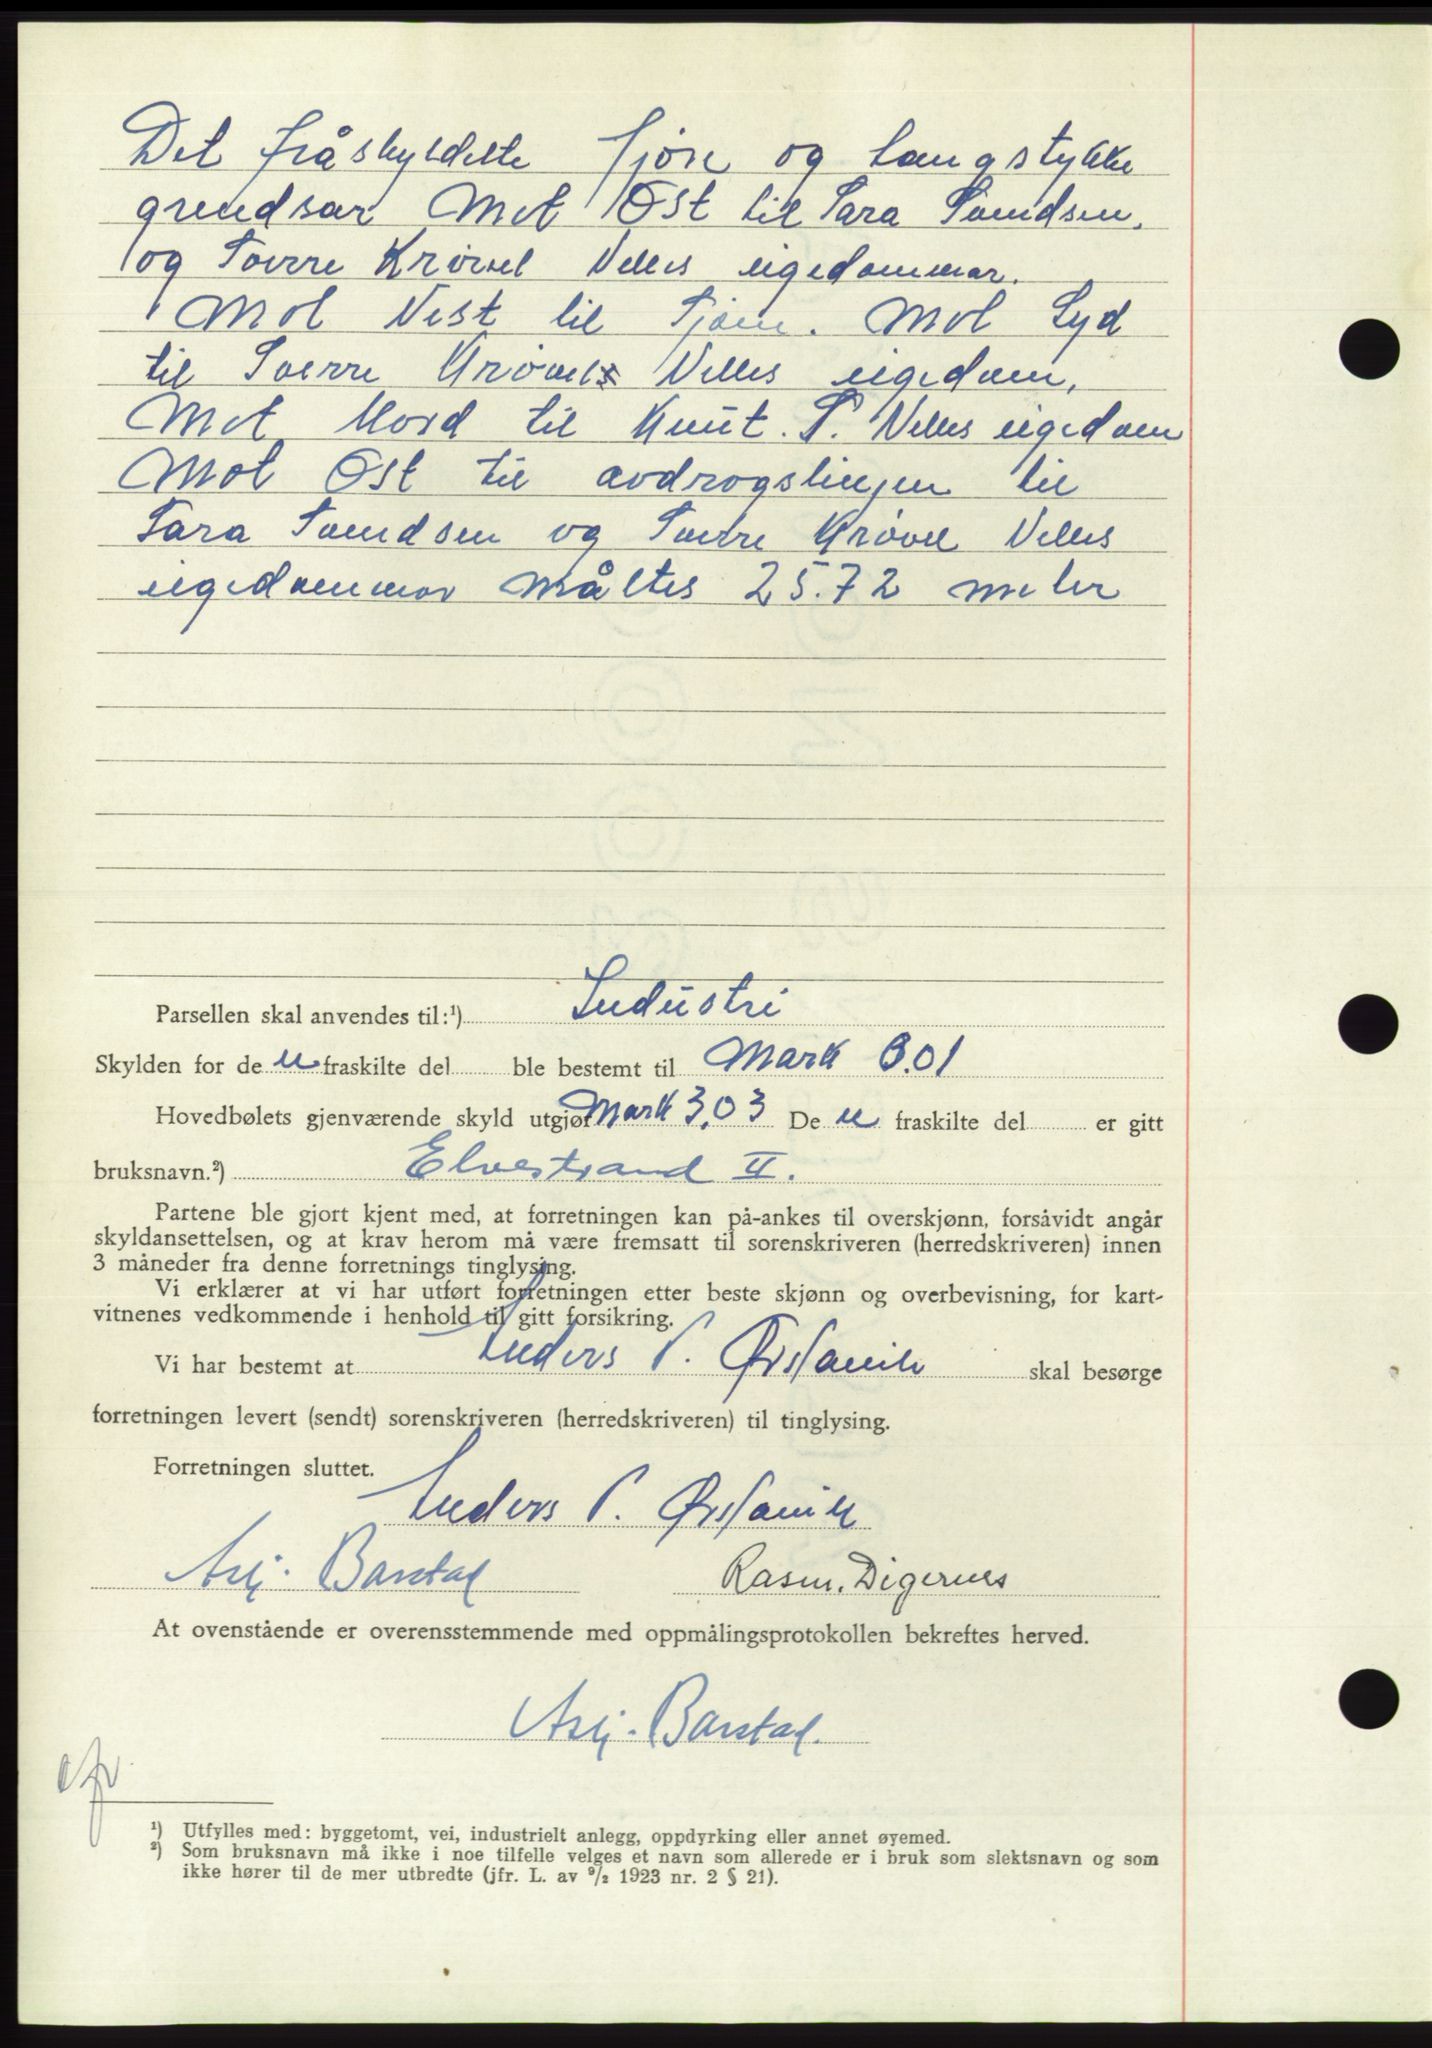 Det fråskyldelte Sjøre og Langstykke
grendsar Mot Øst til Sara Svendsen.
og Sverre Krøvel Velles eigedommar.
Mot Vest til Sjøen. Mot Syd
til Sverre Krøvel Velles eigedom.
Mot Nord til Knut. S. Velles eigedom
Mot Øst til avdragslinjen til
Sara Svendsen og Sverre Krøvel Velles
eigedommar måltes 25.72 meter
Parsellen skal anvendes til:¹) Industri
Skylden for de n fraskilte del ble bestemt til Mark 0.01
Hovedbølets gjenværende skyld utgjør Mark 3,03 De n fraskilte del er gitt
bruksnavn.²) Elvestrand II.
Partene ble gjort kjent med, at forretningen kan på-ankes til overskjønn, forsåvidt angår
skyldansettelsen, og at krav herom må være fremsatt til sorenskriveren (herredskriveren) innen
3 måneder fra denne forretnings tinglysing.
Vi erklærer at vi har utført forretningen etter beste skjønn og overbevisning, for kart-
vitnenes vedkommende i henhold til gitt forsikring.
Vi har bestemt at Anders P. Ørstavik skal besørge
forretningen levert (sendt) sorenskriveren (herredskriveren) til tinglysing.
Forretningen sluttet.
Anders P. Ørstavik
Asbj. Barstad Rasm. Digernes
At ovenstående er overensstemmende med oppmålingsprotokollen bekreftes herved.
Asbj. Barstad.
¹) Utfylles med: byggetomt, vei, industrielt anlegg, oppdyrking eller annet øyemed.
²) Som bruksnavn må ikke i noe tilfelle velges et navn som allerede er i bruk som slektsnavn og som
ikke hører til de mer utbredte (jfr. L. av ⁹/₂ 1923 nr. 2 § 21).